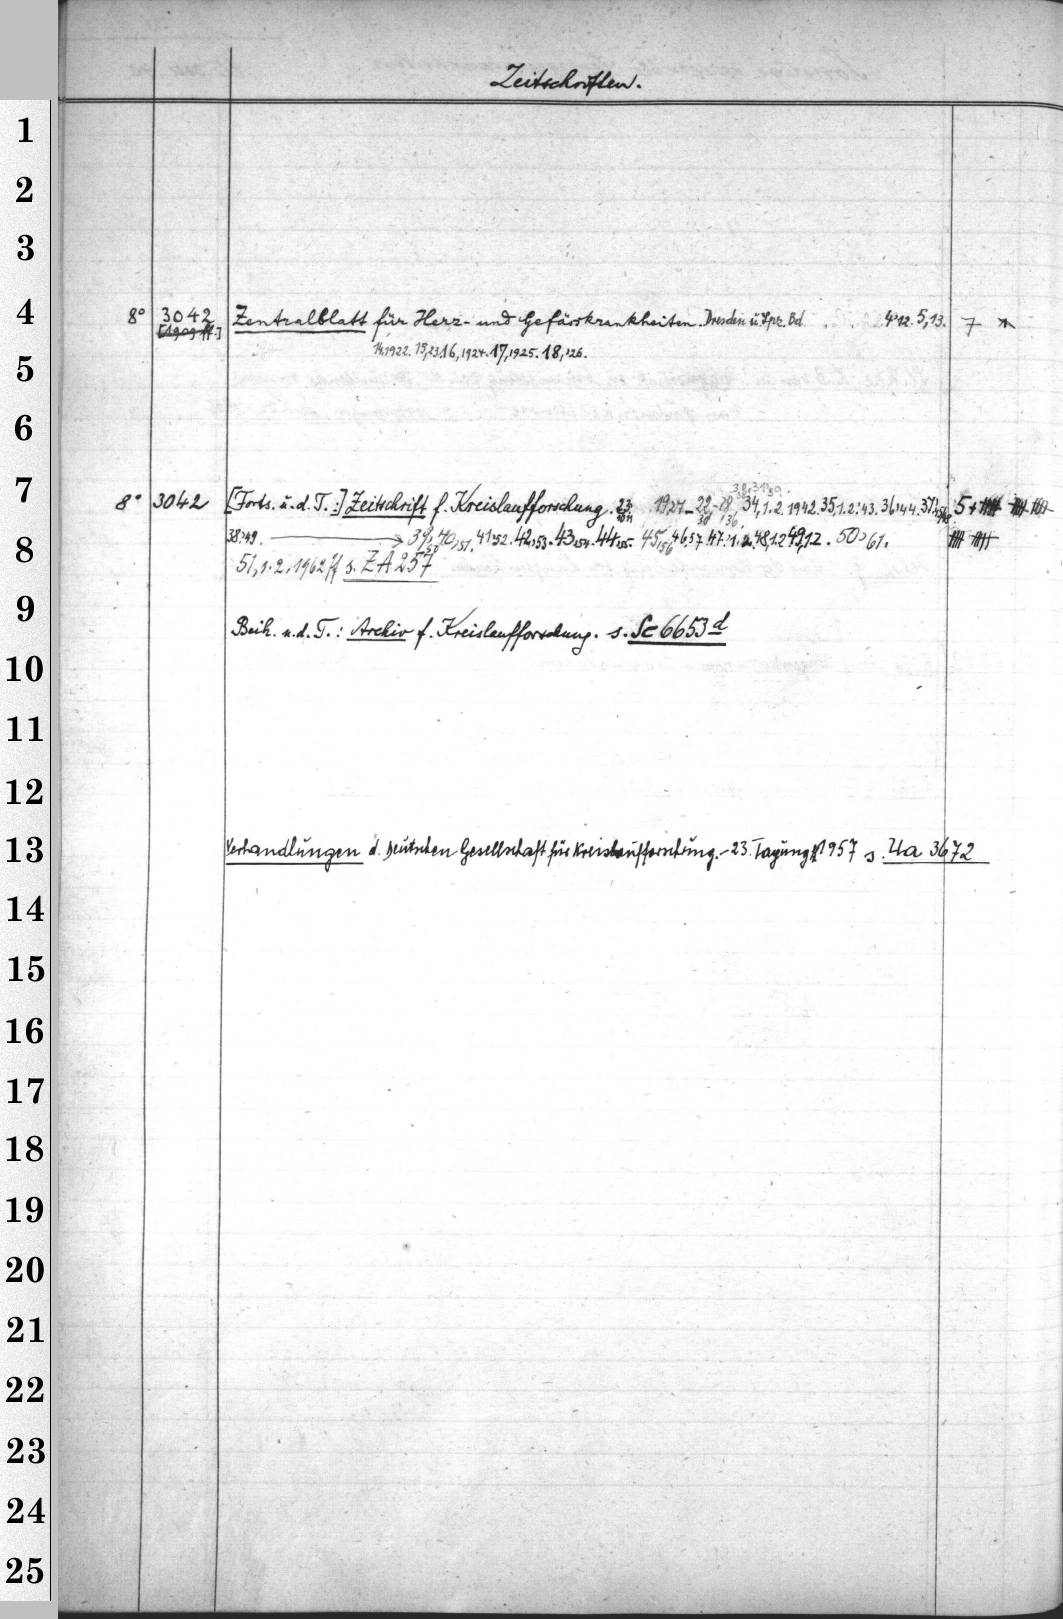 Zeitschriften.
1
2
3
4 8° 3042 Zentralblatt für Herz- und Gefässkrankheiten. Dresden u. Lpz. Bd 4,12. 5,13. 7
[1909 ff.]
14,1922. 15,23. 16,1924. 17,1925. 18,'26.
5
6
7 8° 3042 [Forts. u. d. T.:] Zeitschrift f. Kreislaufforschung. 1927 22 28, 34,1.2 1942. 35,1.2.'43. 36,'44. 5+
8 38,'49. 39, 40,'51. 41,'52. 42,'53. 43,'54. 44,'55. 45,'56 46,'57 47,1.2. 48,1.2 49,1.2. 50,'61.
51,1.2.1962 ff s. ZA 257
9 Beih. u. d. T.: Archiv f. Kreislaufforschung. s. Sc 6653 d
10
11
12
13 Verhandlungen d. Deutschen Gesellschaft für Kreislaufforschung. - 23. Tagung 1957 s. Ua 3672
14
15
16
17
18
19
20
21
22
23
24
25